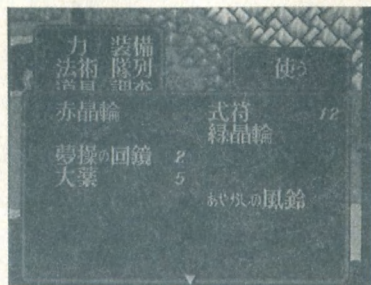 力 装備
法術 隊列
道具 調査
使う
赤晶輪
式符 12
緑晶輪
夢操の回鏡 2
大薬 5
あやかしの風鈴